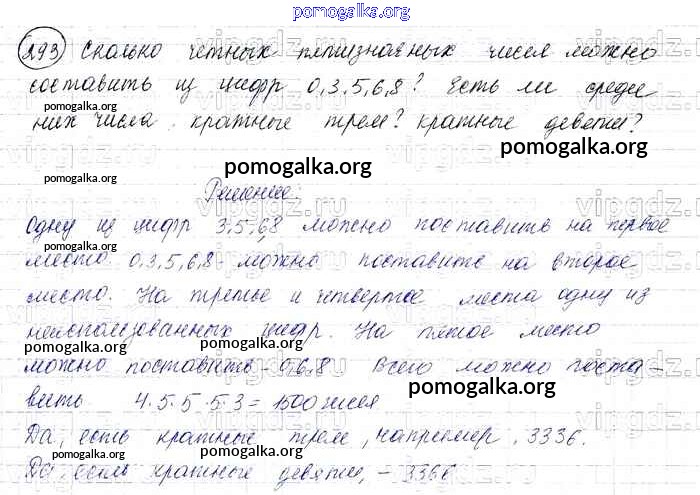 pomogalka.org
193 Сколько четных пятизначных чисел можно
составить из цифр 0,3,5,6,8? Есть ли среди
pomogalka.org
них числа кратные трем? кратные девяти?
pomogalka.org pomogalka.org
Решение:
Одну из цифр 3,5,6,8 можно поставить на первое
pomogalka.org
место. 0,3,5,6,8 можно поставить на второе
место. На третье и четвертое места одну из
неиспользованных цифр. На пятое место
pomogalka.org pomogalka.org
можно поставить - 0,6,8 Всего можно поста-
pomogalka.org
вить 4·5·5·5·3=1500 чисел
Да, есть кратные трем, например, 3336.
pomogalka.org
Да, есть кратные девяти, - 3366